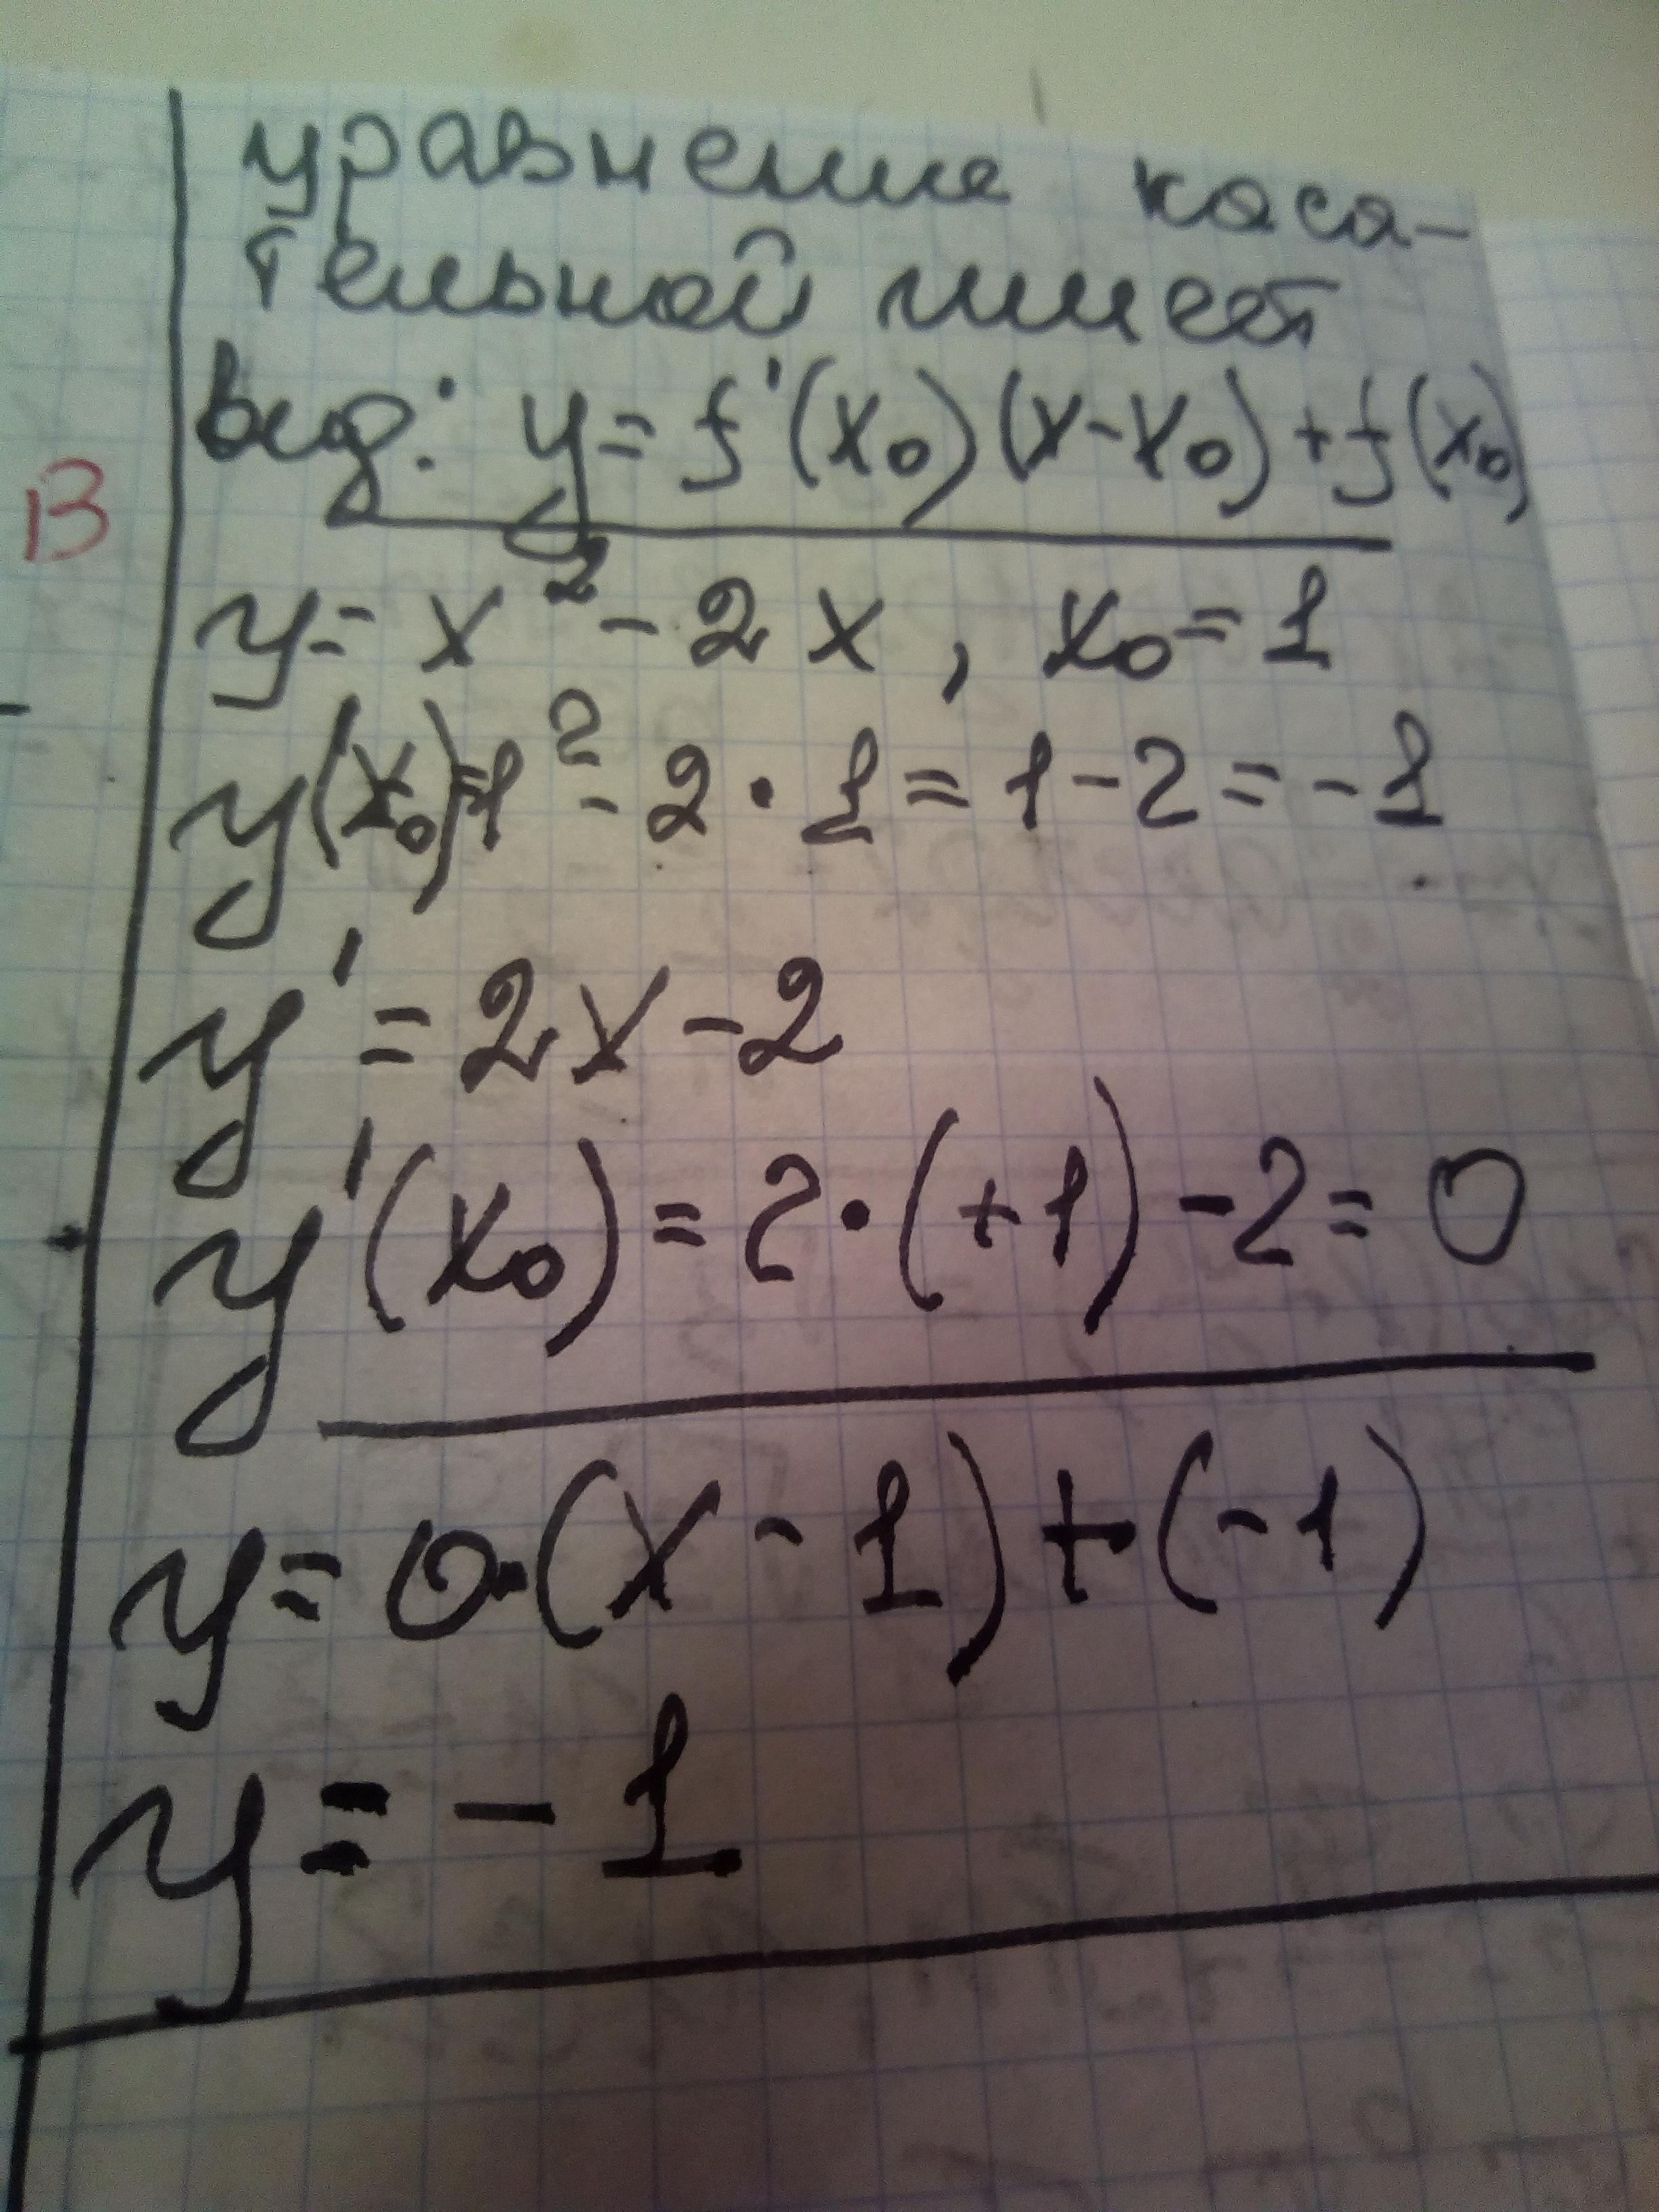 уравнение каса-
тельной имеет
вид: y = f'(x₀)(x-x₀)+f(x₀)
В
y= x² - 2x, x₀=1
y(x₀)=1² - 2·1 = 1-2 = -1
y' = 2x-2
y'(x₀) = 2·(+1) -2 = 0
y = 0·(x - 1) + (-1)
y = - 1